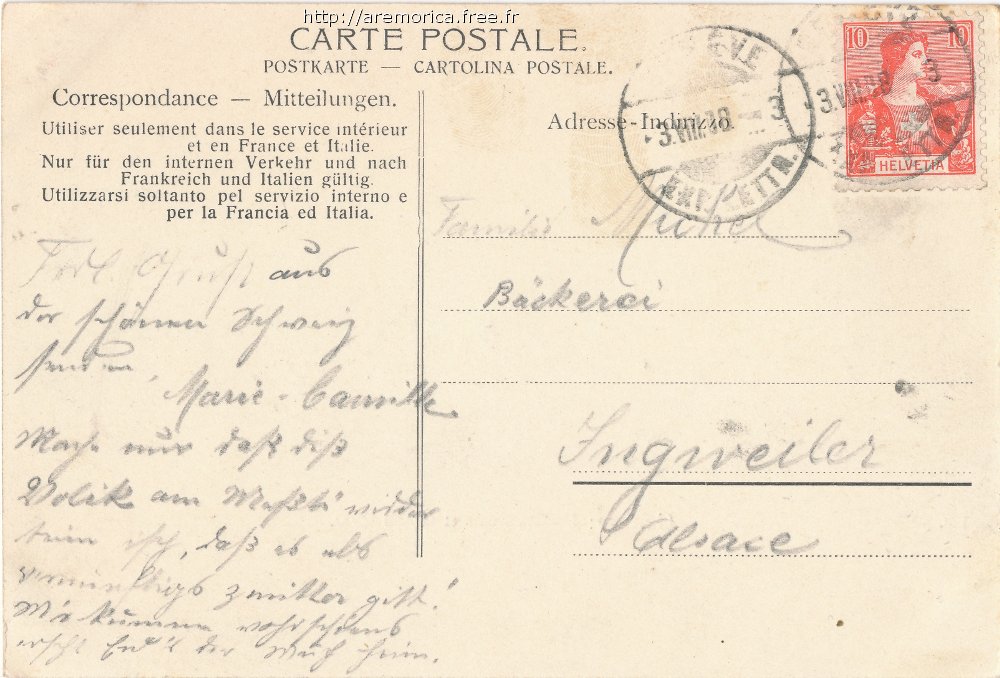 http://aremorica.free.fr
CARTE POSTALE.
POSTKARTE — CARTOLINA POSTALE.
Correspondance — Mitteilungen.
Utiliser seulement dans le service intérieur
et en France et Italie.
Nur für den internen Verkehr und nach
Frankreich und Italien gültig.
Utilizzarsi soltanto pel servizio interno e
per la Francia ed Italia.
Adresse-Indirizzo
3.VIII.08 — 3
10 10
HELVETIA
Familie
Bäckerei
Ingweiler
Alsace
Gruß aus
der schönen Schweiz
Marie - Camille
nur daß diß
am
isch, daß es als
gitt!
kumme
erscht End'r der Wuch heim.